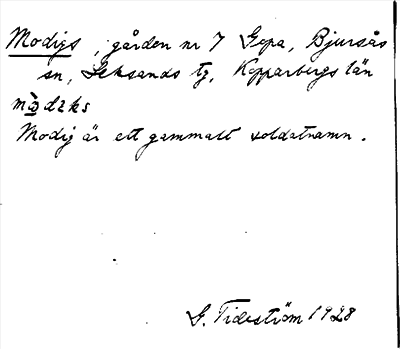 Modigs, gården nr 7 Gopa, Bjursås
sn, Leksands tg, Kopparbergs län
Modig är ett gammalt soldatnamn.
G. Tideström 1928